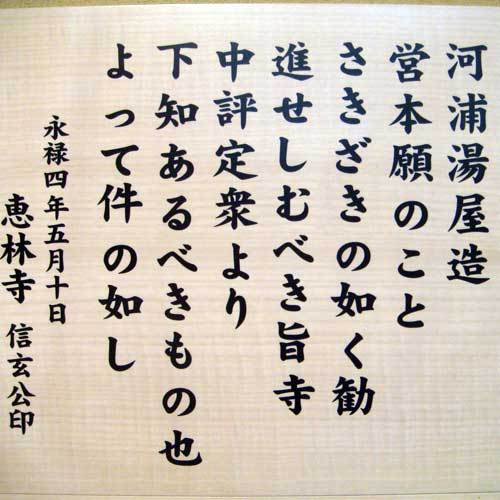 河浦湯屋造
営本願のこと
さきざきの如く勧
進せしむべき旨寺
中評定衆より
下知あるべきもの也
よって件の如し
永禄四年五月十日
恵林寺 信玄公印